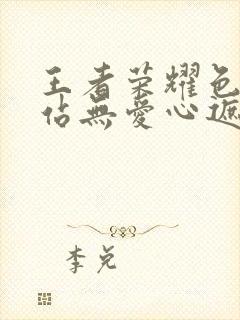 王者荣耀色
佔無愛心遮
李兌